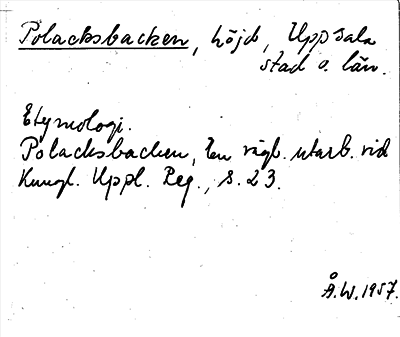 Polacksbacken, höjd, Uppsala
stad o. län.
Etymologi.
Polacksbacken, En vägl. utarb. vid
Kungl. Uppl. Reg., s. 23.
Å.W. 1957.